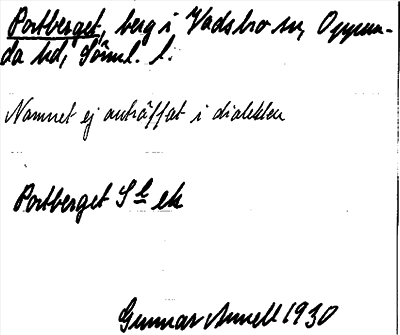 Portberget, berg i Vadsbro sn, Oppun-
da hd, Söml. l.
Namnet ej anträffat i dialekten
Portberget Sl ek
Gunnar Annell 1930